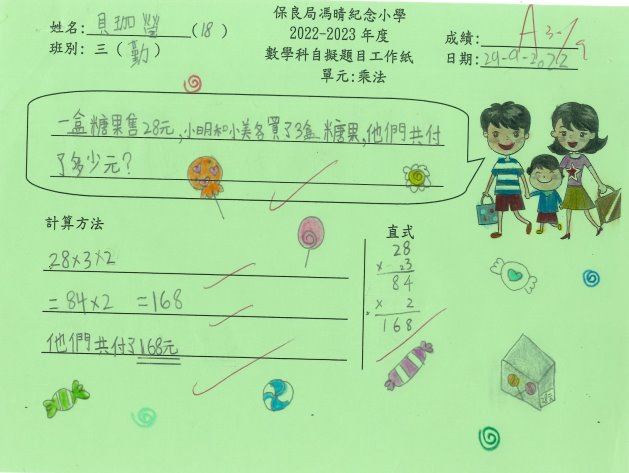 保良局馮晴紀念小學
2022-2023年度
數學科自擬題目工作紙
單元:乘法
姓名: 貝珈瑩 (18)
班別: 三(勤)
成績: A
日期: 29-9-2022
一盒糖果售28元,小明和小美各買了3盒糖果,他們共付
了多少元?
計算方法
28×3×2
=84×2 =168
他們共付了168元
直式
28
× 3
84
× 2
168